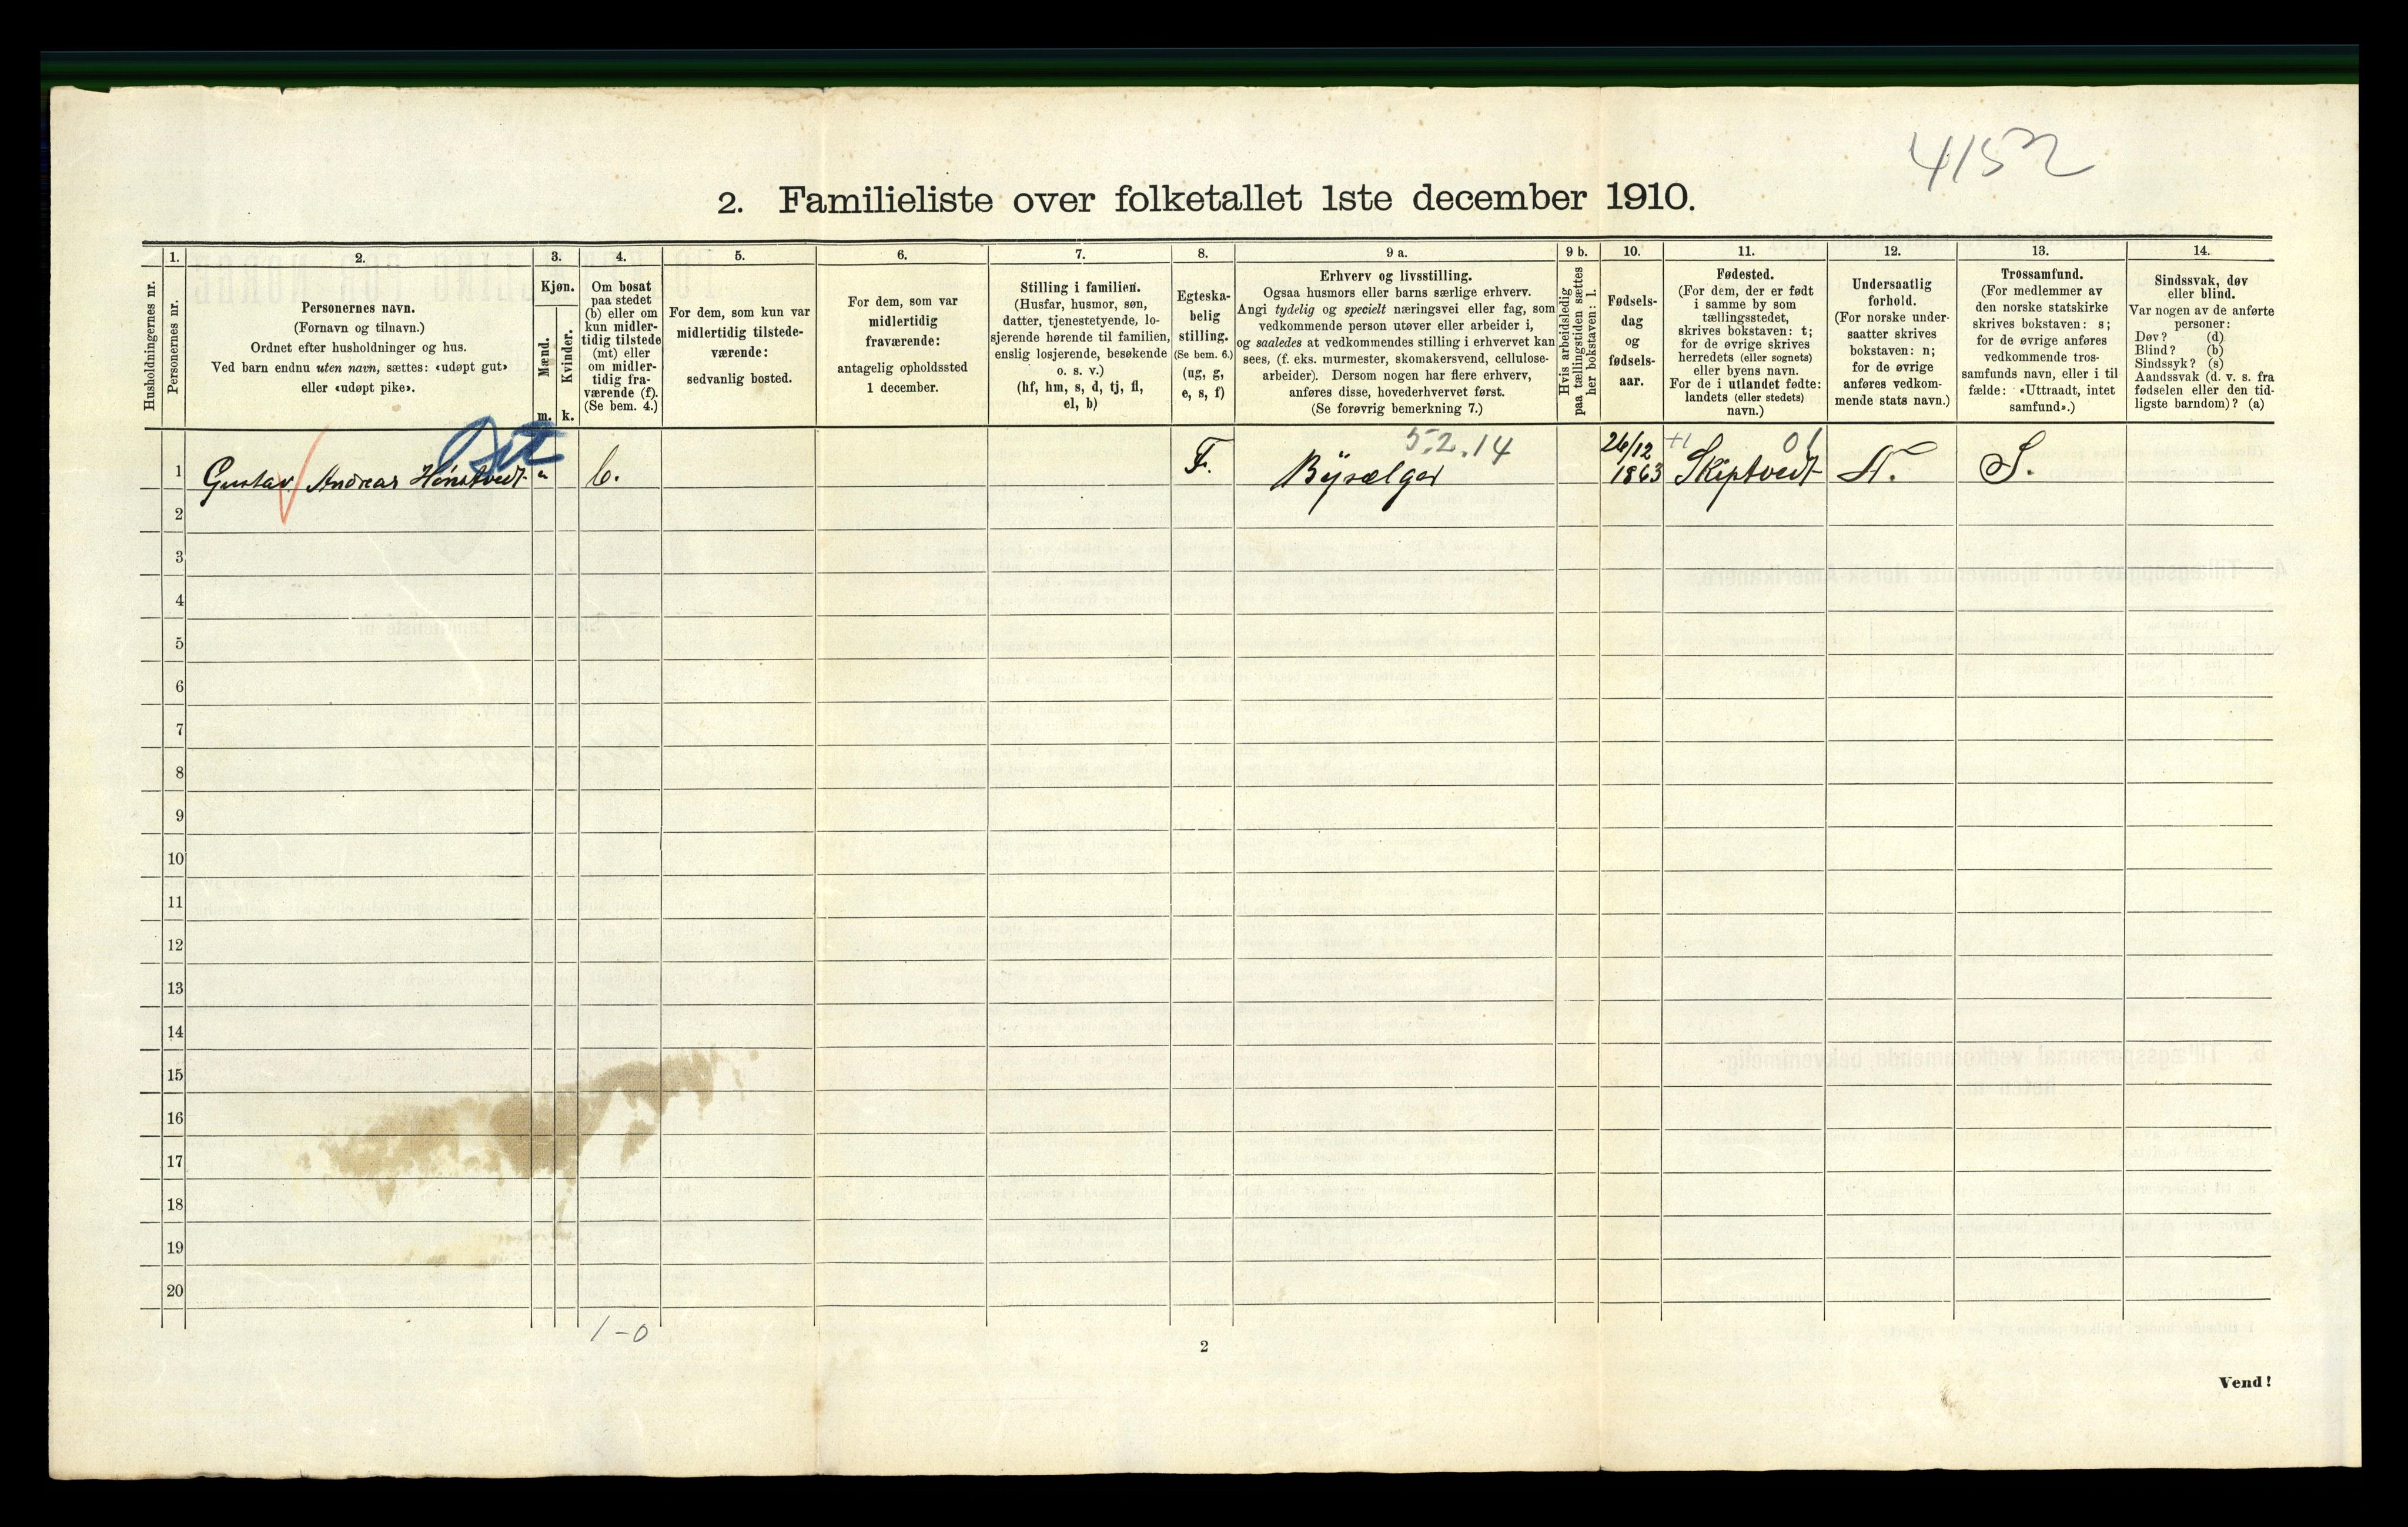 4152
2. Familieliste over folketallet 1ste december 1910.
Husholdningernes nr.
1.
Personernes nr.
2.
Personernes navn.
(Fornavn og tilnavn.)
Ordnet efter husholdninger og hus.
Ved barn endnu uten navn, sættes: «udøpt gut»
eller «udøpt pike».
3.
Kjøn.
Mænd.
Kvinder.
m. k.
4.
Om bosat
paa stedet
(b) eller om
kun midler-
tidig tilstede
(mt) eller
om midler-
tidig fra-
værende (f).
(Se bem. 4.)
5.
For dem, som kun var
midlertidig tilstede-
værende:
sedvanlig bosted.
6.
For dem, som var
midlertidig
fraværende:
antagelig opholdssted
1 december.
7.
Stilling i familien.
(Husfar, husmor, søn,
datter, tjenestetyende, lo-
sjerende hørende til familien,
enslig losjerende, besøkende
o. s. v.)
(hf, hm, s, d, tj, fl,
el, b)
8.
Egteska-
belig
stilling.
(Se bem. 6.)
(ug, g,
e, s, f)
9 a.
Erhverv og livsstilling.
Ogsaa husmors eller barns særlige erhverv.
Angi tydelig og specielt næringsvei eller fag, som
vedkommende person utøver eller arbeider i,
og saaledes at vedkommendes stilling i erhvervet kan
sees, (f. eks. murmester, skomakersvend, cellulose-
arbeider). Dersom nogen har flere erhverv,
anføres disse, hovederhvervet først.
(Se forøvrig bemerkning 7.)
9 b.
Hvis arbeidsledig
paa tællingstiden sættes
her bokstaven: l.
10.
Fødsels-
dag
og
fødsels-
aar.
11.
Fødested.
(For dem, der er født
i samme by som
tællingsstedet,
skrives bokstaven: t;
for de øvrige skrives
herredets (eller sognets)
eller byens navn.
For de i utlandet fødte:
landets (eller stedets)
navn.)
12.
Undersaatlig
forhold.
(For norske under-
saatter skrives
bokstaven: n;
for de øvrige
anføres vedkom-
mende stats navn.)
13.
Trossamfund.
(For medlemmer av
den norske statskirke
skrives bokstaven: s;
for de øvrige anføres
vedkommende tros-
samfunds navn, eller i til
fælde: «Uttraadt, intet
samfund».)
14.
Sindssvak, døv
eller blind.
Var nogen av de anførte
personer:
Døv? (d)
Blind? (b)
Sindssyk? (s)
Aandssvak (d. v. s. fra
fødselen eller den tid-
ligste barndom)? (a)
5.2.14
01
1 Gustav Andreas Hønstvedt b. F. Bysælger 26/12 1863 Skiptvedt N. S.
2
3
4
5
6
7
8
9
10
11
12
13
14
15
16
17
18
19
20
1-0
2
Vend!